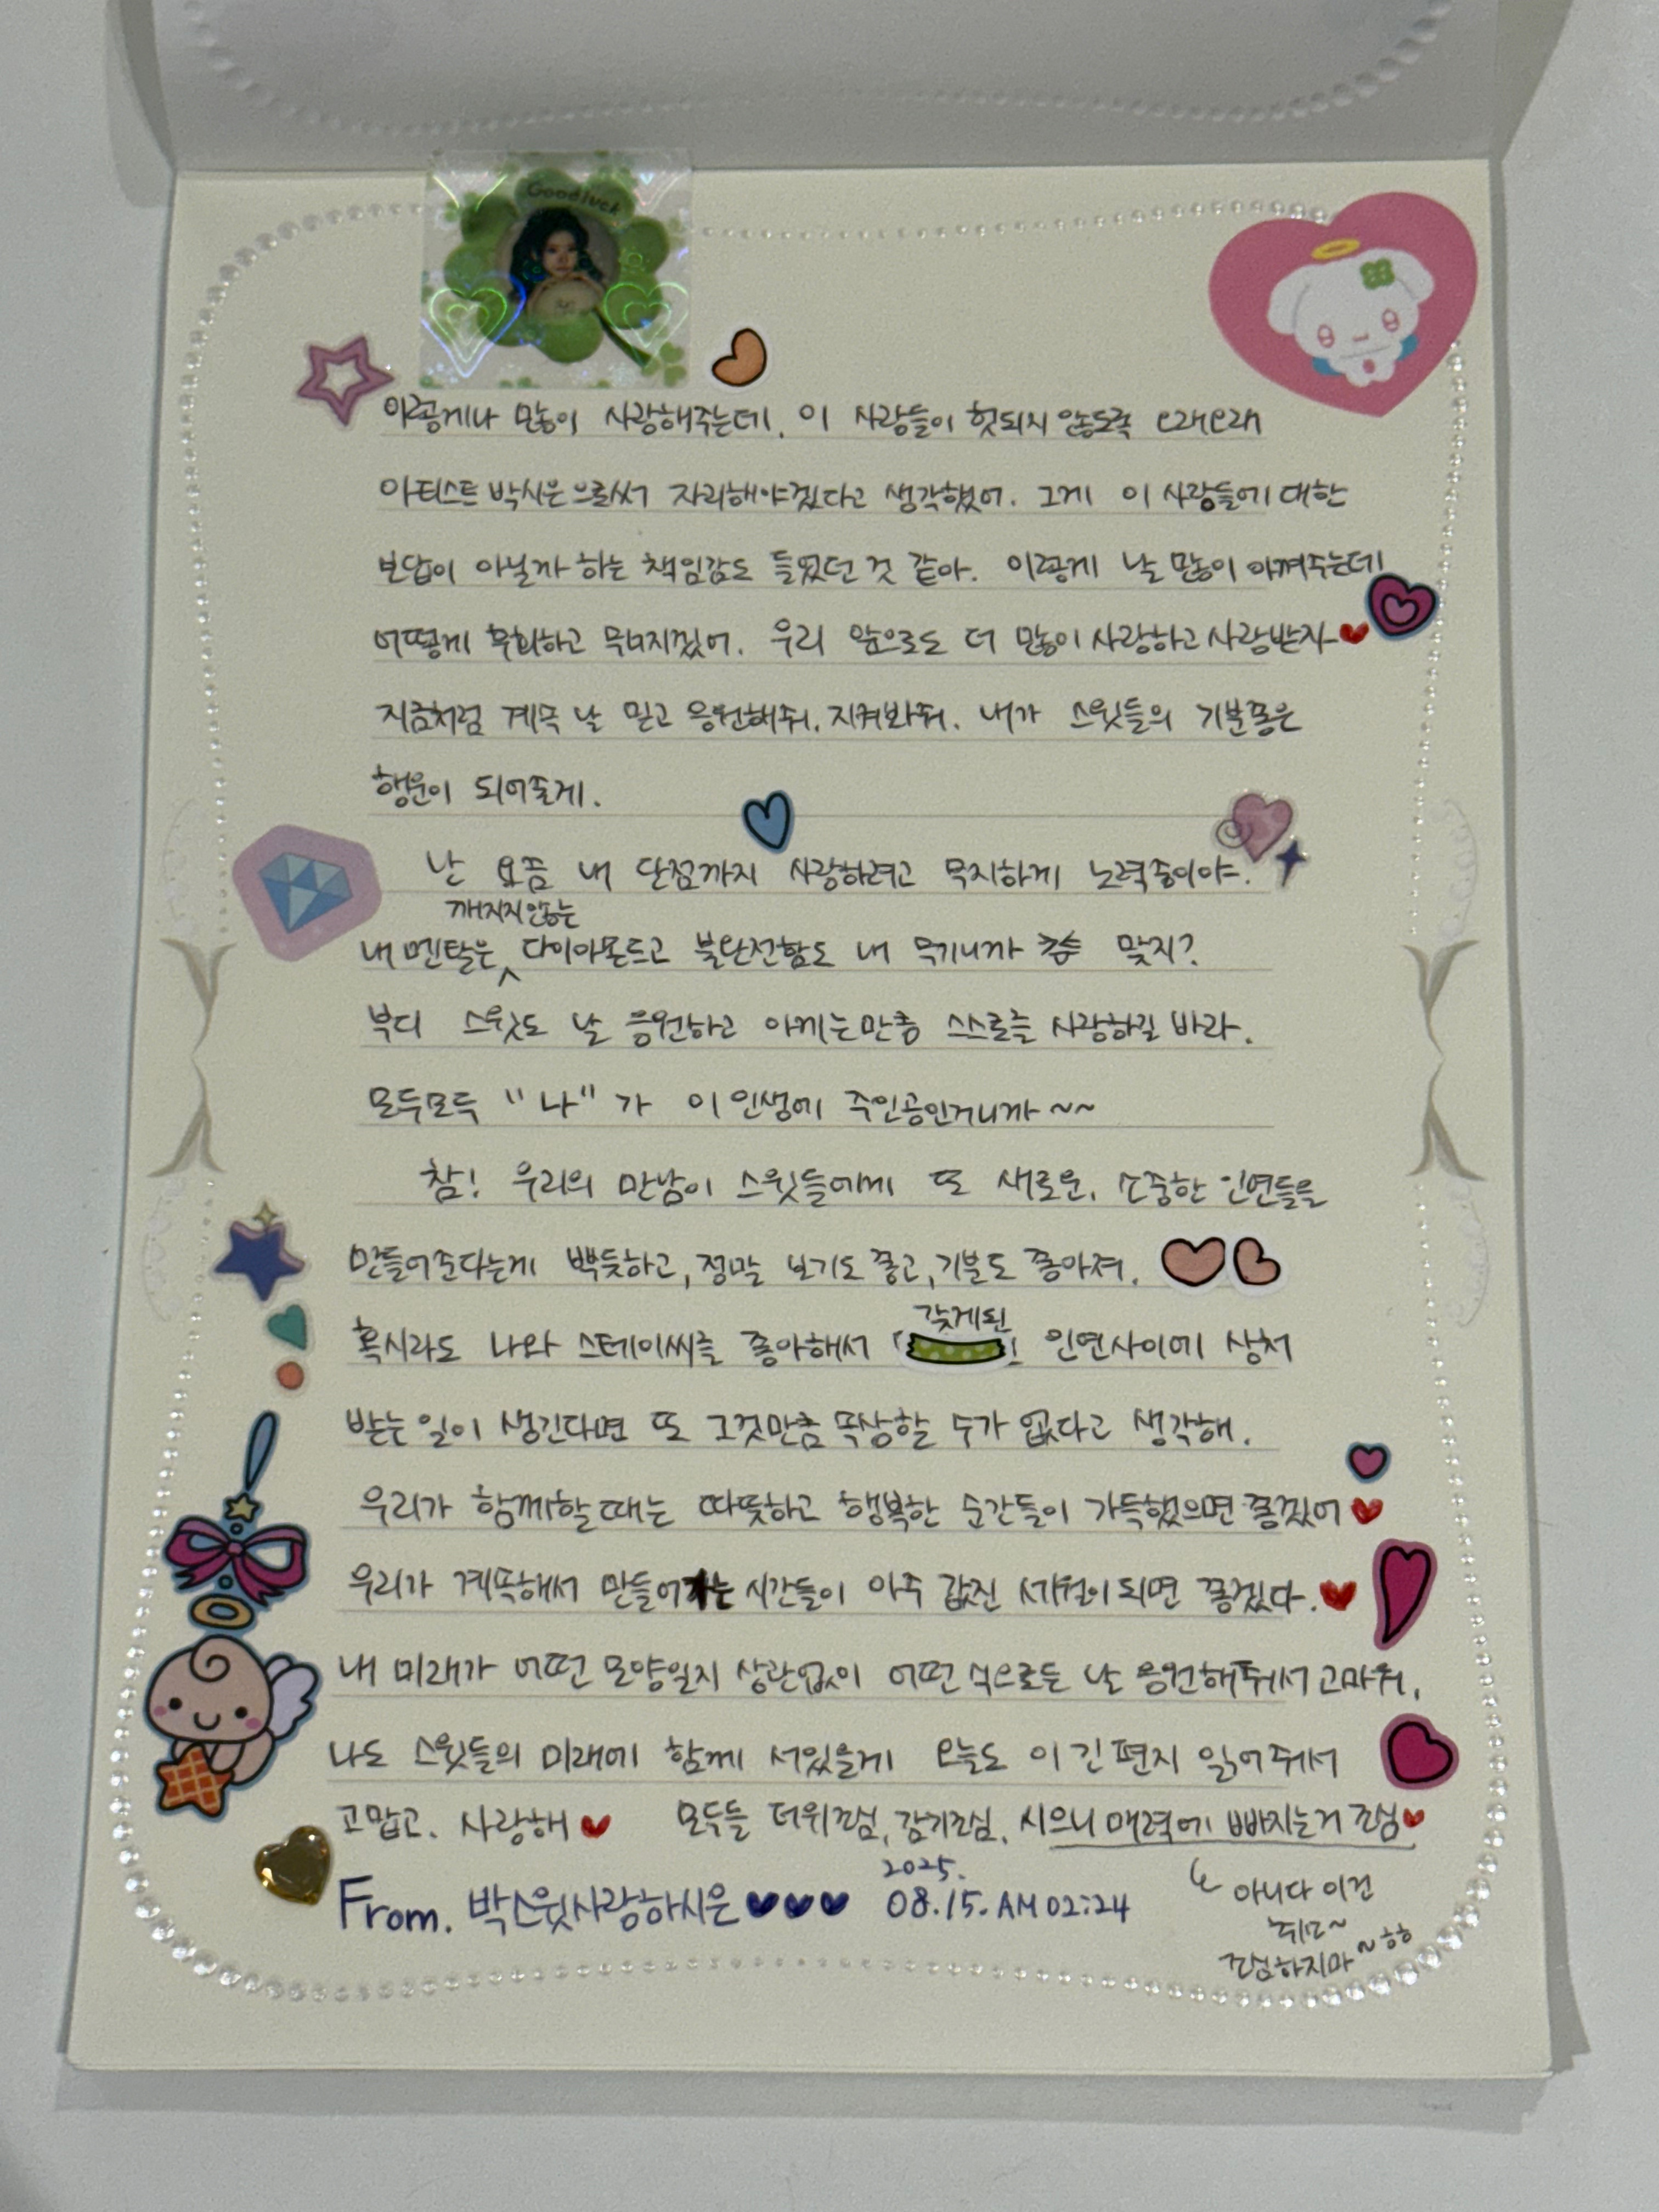 Goodluck
이렇게나 많이 사랑해주는데, 이 사랑들이 헛되지 않도록 오래오래
아티스트 박시은으로써 자리해야겠다고 생각했어. 그게 이 사랑들에 대한
보답이 아닐까 하는 책임감도 들었던 것 같아. 이렇게 날 많이 아껴주는데
어떻게 후회하고 무너지겠어. 우리 앞으로도 더 많이 사랑하고 사랑받자
지금처럼 계속 날 믿고 응원해줘. 지켜봐줘. 내가 스윗들의 기분좋은
행운이 되어줄게.
난 요즘 내 단점까지 사랑하려고 무지하게 노력중이야.
깨지지않는
내 멘탈은 다이아몬드고 불완전함도 내 무기니까 맞지?
부디 스윗도 날 응원하고 아끼는만큼 스스로를 사랑하길 바라.
모두모두 "나"가 이 인생에 주인공인거니까~~
참! 우리의 만남이 스윗들에게 또 새로운, 소중한 인연들을
만들어준다는게 뿌듯하고, 정말 보기도 좋고, 기분도 좋아져.
갖게된
혹시라도 나와 스테이씨를 좋아해서 인연사이에 상처
받는 일이 생긴다면 또 그것만큼 속상할 수가 없다고 생각해.
우리가 함께할때는 따뜻하고 행복한 순간들이 가득했으면 좋겠어
우리가 계속해서 만들어가는 시간들이 아주 값진 세월이 되면 좋겠다.
내 미래가 어떤 모양일지 상관없이 어떤 식으로든 날 응원해줘서 고마워,
나도 스윗들의 미래에 함께 서있을게 오늘도 이 긴 편지 읽어줘서
고맙고, 사랑해 모두들 더위조심, 감기조심, 시으니 매력에 빠지는거 조심
From. 박스윗사랑하시은 2025.
08.15. AM 02:24
아니다 이건
취소~
조심하지마~ㅎㅎ